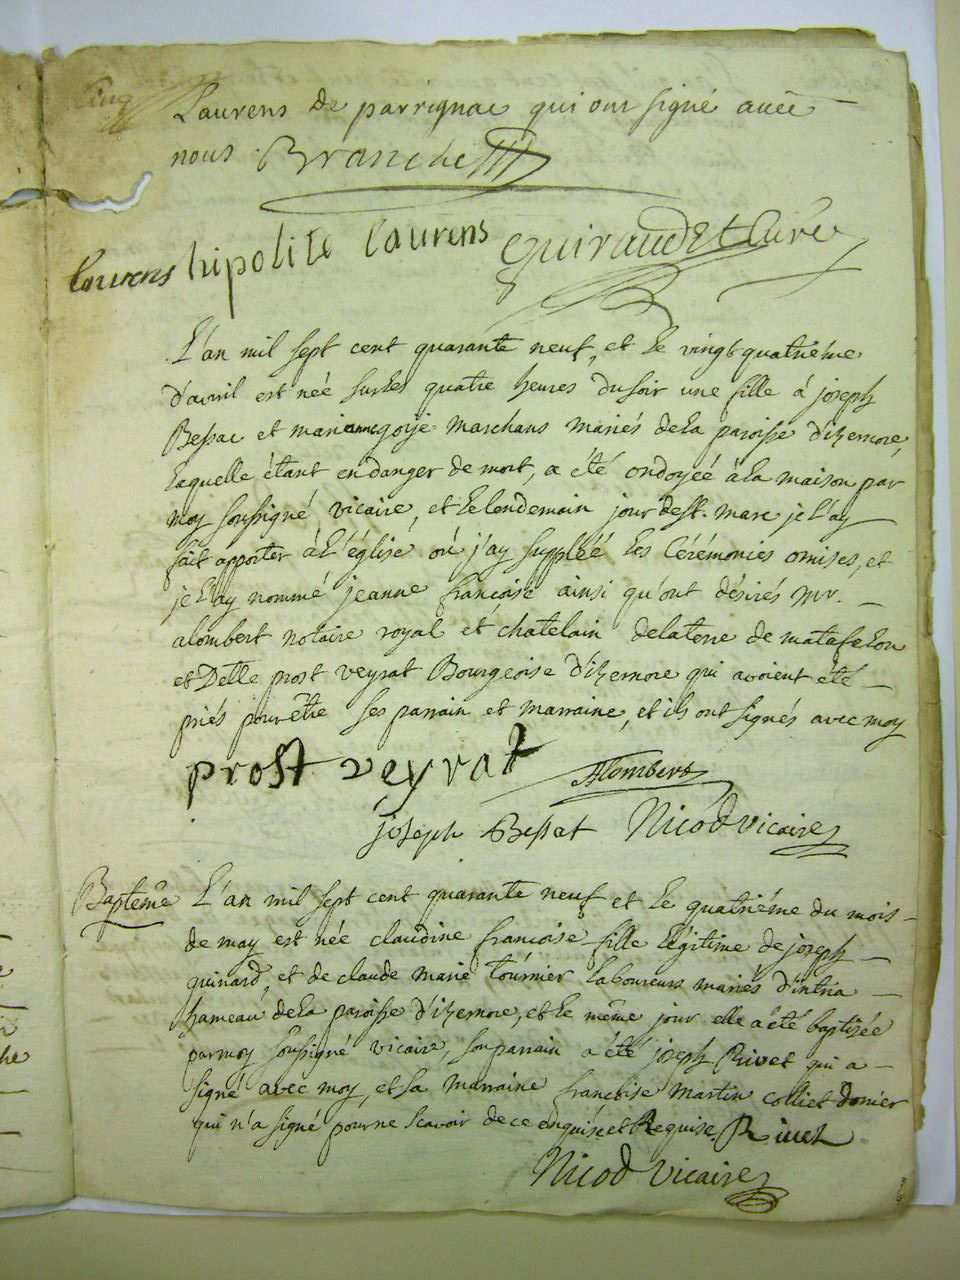 Cinq
Laurens de parrignac qui ont signé avec
nous Branche
laurens hipolite laurens Guiraudet Curé
L'an mil sept cent quarante neuf, et le vingt quatriéme
d'avril est née sur les quatre heures du soir une fille à joseph
Bessac et marianne goyé marchans mariés de la paroisse d'izernore,
laquelle étant en danger de mort, a été ondoyée à la maison par
moy soussigné vicaire, et le lendemain jour de st. marc je l'ay
fait apporter à l'église où j'ay suppléé les cérémonies omises, et
je l'ay nommé jeanne francoise ainsi qu'ont désirés mr.
alombert notaire royal et chatelain de la terre de matafelon
et Delle prost veyrat Bourgeoise d'izernore qui avoient été
priés pour être ses parrain et marraine, et ils ont signés avec moy
prost veyrat Alombert
joseph Bessat Nicod vicaire
Baptême L'an mil sept cent quarante neuf et le quatriéme du mois
de may est née claudine francoise fille légitime de joseph
guinard, et de claude marie tournier laboureurs mariés d'intria
hameau de la paroisse d'izernore, et le même jour elle a été baptisée
par moy soussigné vicaire, son parrain a été joseph Rivet qui a
signé avec moy, et sa marraine francoise martin colliet donier
qui n'a signé pour ne scavoir de ce enquise et Requise. Rivet
Nicod vicaire